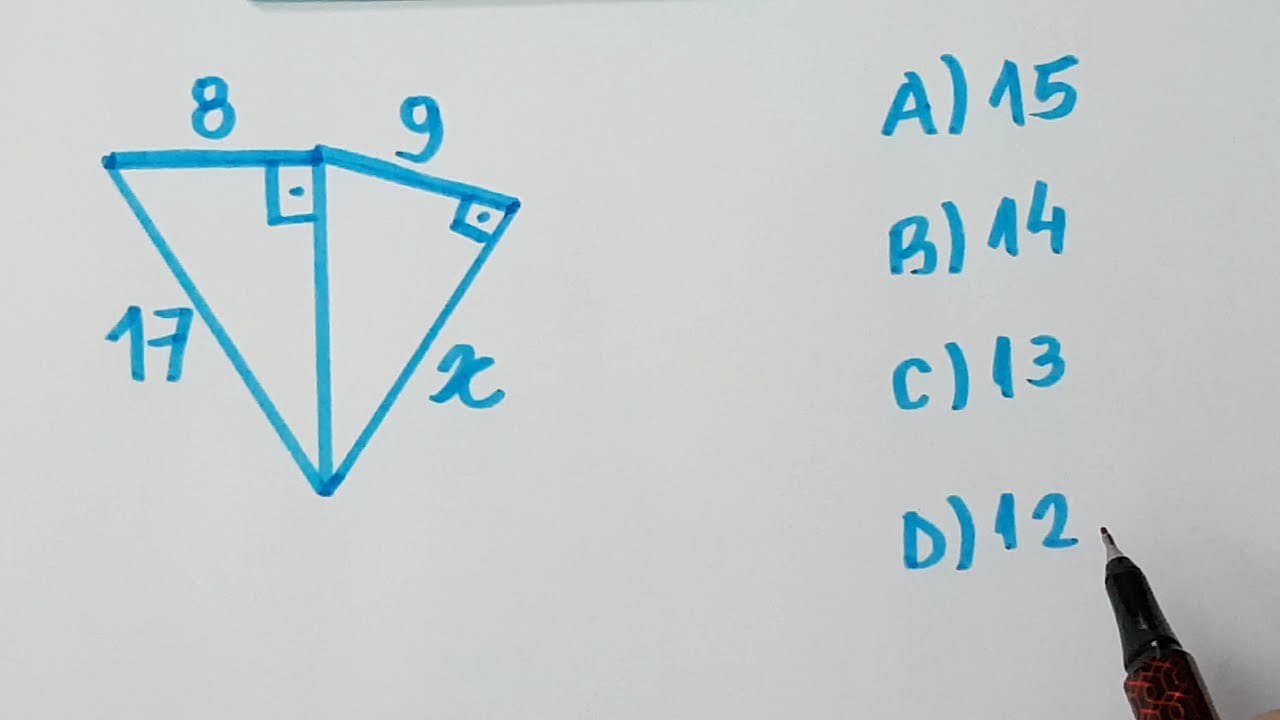 8
9
17
x
A) 15
B) 14
C) 13
D) 12